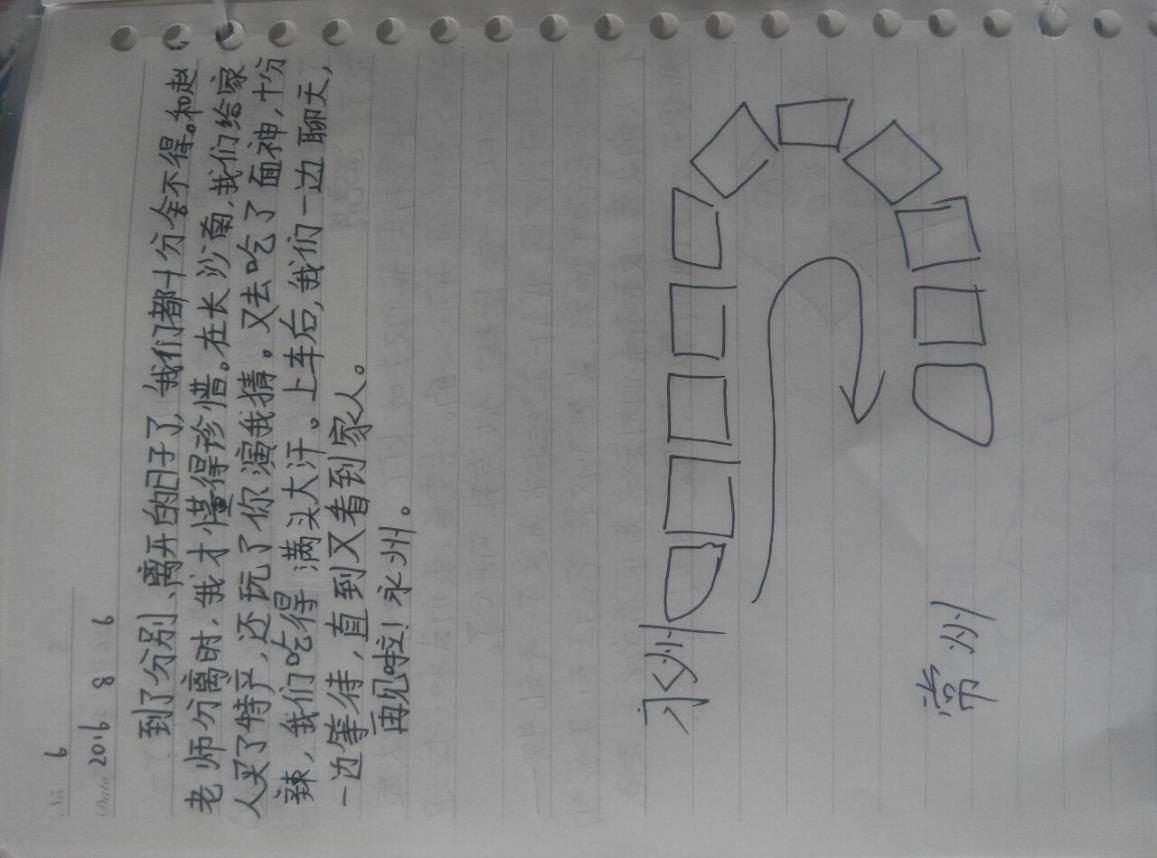 No. 6
Date 2016 8 6
到了分别、离开的日子了,我们都十分舍不得。和赵
老师分离时,我才懂得珍惜。在长沙南,我们给家
人买了特产,还玩了你演我猜。又去吃了面神,十分
辣,我们吃得满头大汗。上车后,我们一边聊天,
一边等待,直到又看到家人。
再见啦!永州。
永州
常州